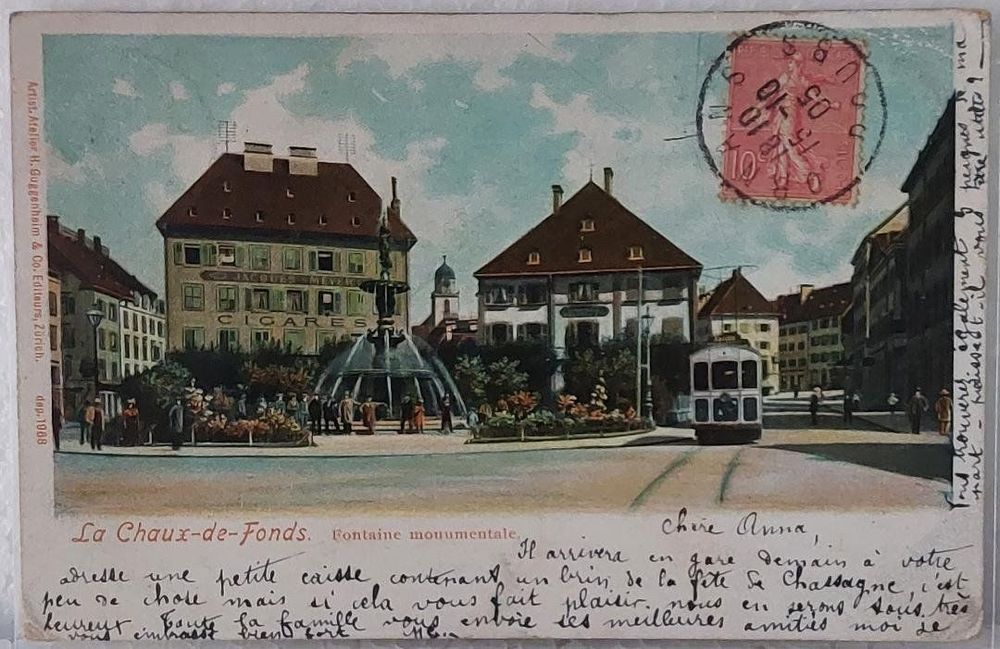 Artist. Atelier H. Guggenheim & Co. Editeurs, Zürich.
dep. 1968
CIGARES
10c
13/8 10
05-10
La Chaux-de-Fonds. Fontaine monumentale.
chère Anna,
Il arrivera en gare demain à votre
adresse une petite caisse contenant un brin de la fête de Chassagne, c'est
peu de chose mais si cela vous fait plaisir nous en serons tous très
heureux Toute la famille vous envoie ses meilleures amitiés moi je
vous embrasse bien fort
Vous trouverez également 1 peigne de ma
part - puisse-t-il vous être utile! -